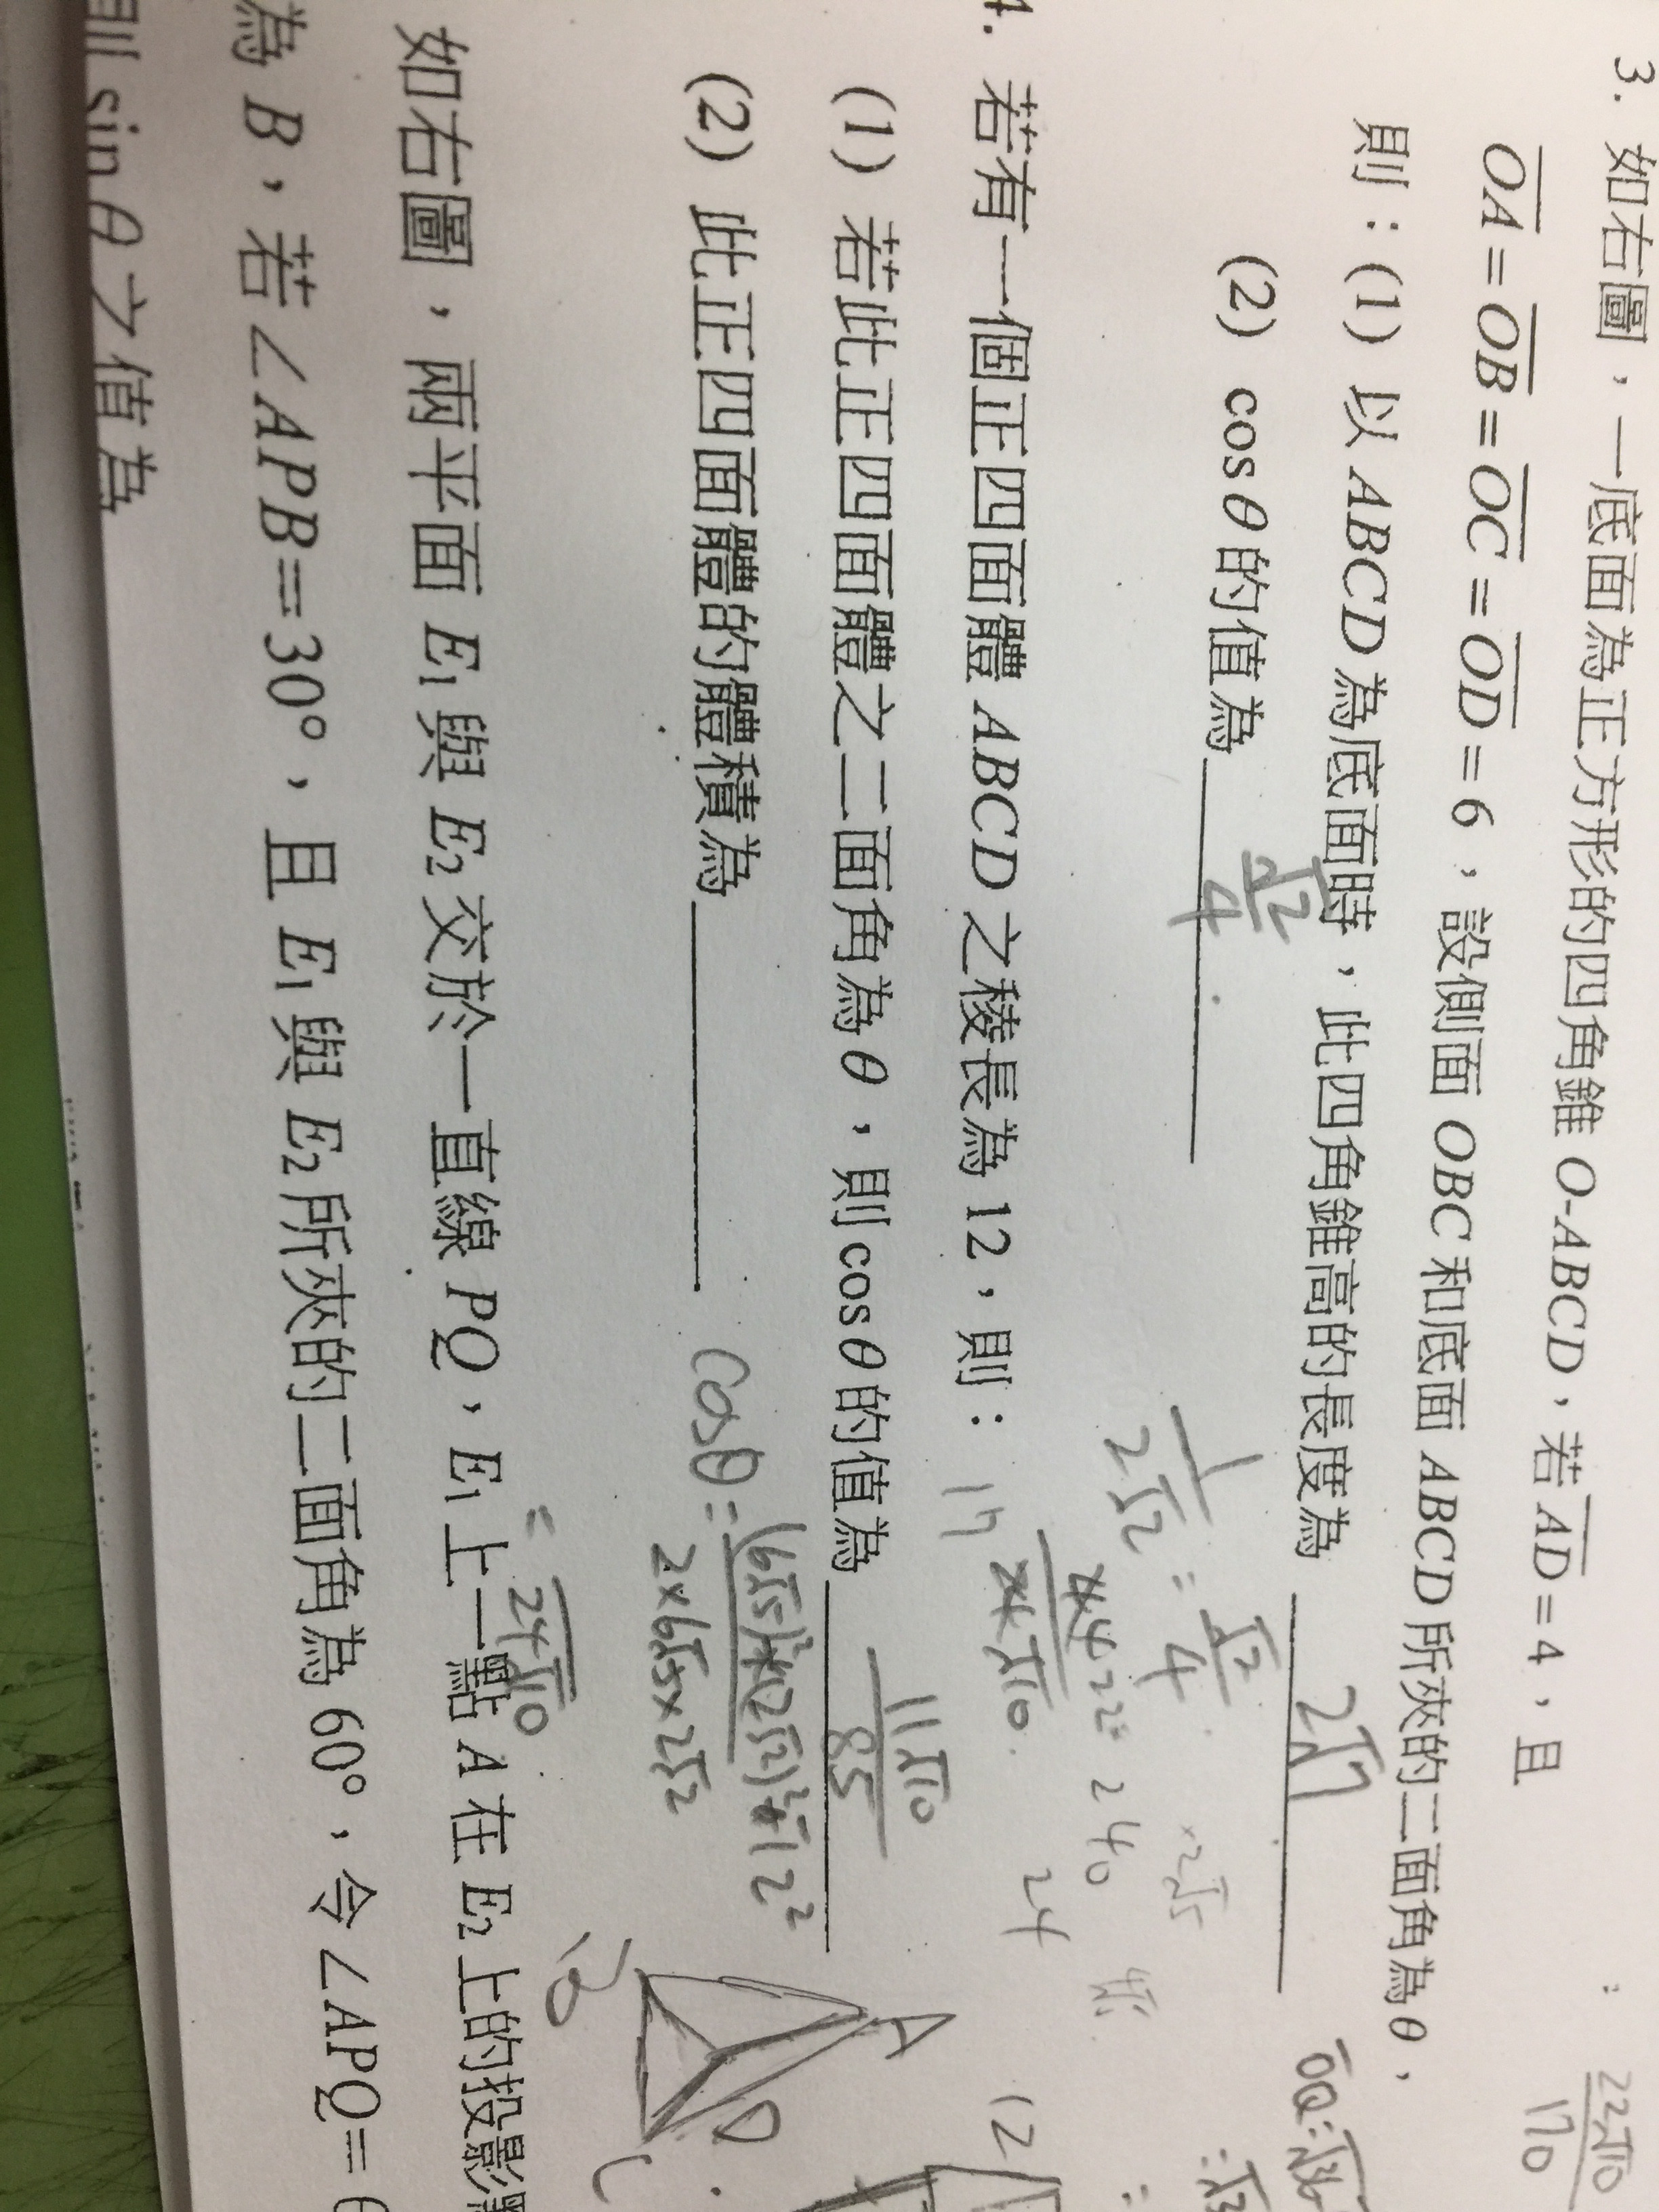 3. 如右圖，一底面為正方形的四角錐 O-ABCD，若 AD = 4，且
OA = OB = OC = OD = 6，設側面 OBC 和底面 ABCD 所夾的二面角為 θ，
則：(1) 以 ABCD 為底面時，此四角錐高的長度為 2√7
(2) cosθ 的值為 √2/4
1/2√2 = √2/4
4. 若有一個正四面體 ABCD 之稜長為 12，則：
(1) 若此正四面體之二面角為 θ，則 cosθ 的值為
(2) 此正四面體的體積為
cosθ =
= 24√10
A
B
C
D
12
如右圖，兩平面 E₁ 與 E₂ 交於一直線 PQ，E₁ 上一點 A 在 E₂ 上的投影
為 B，若∠APB=30°，且 E₁ 與 E₂ 所夾的二面角為 60°，令∠APQ=
則 sin θ 之值為